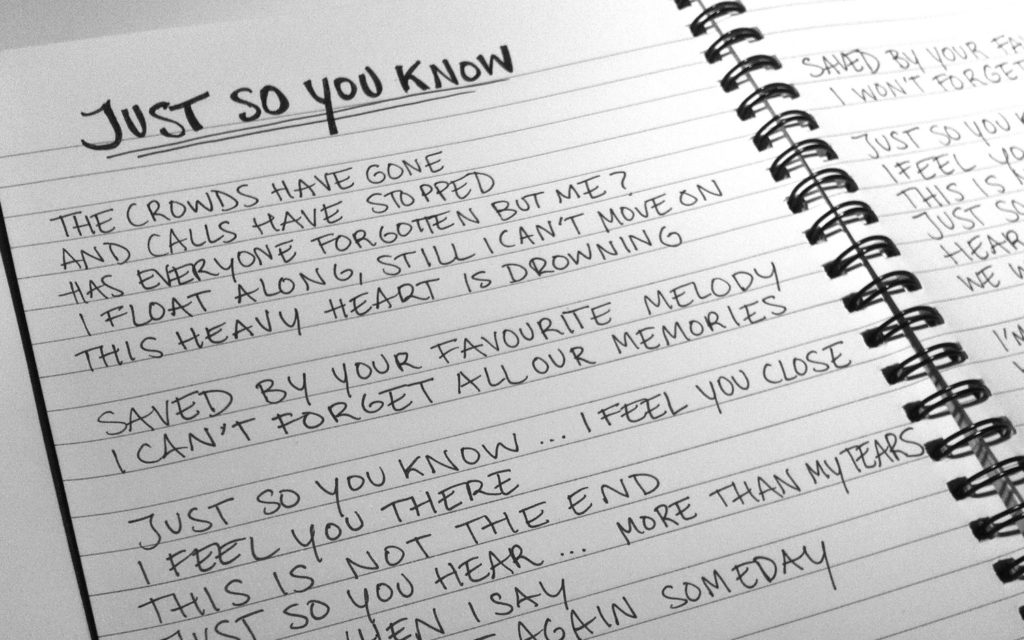 JUST SO YOU KNOW
THE CROWDS HAVE GONE
AND CALLS HAVE STOPPED
HAS EVERYONE FORGOTTEN BUT ME?
I FLOAT ALONG, STILL I CAN'T MOVE ON
THIS HEAVY HEART IS DROWNING
SAVED BY YOUR FAVOURITE MELODY
I CAN'T FORGET ALL OUR MEMORIES
JUST SO YOU KNOW ... I FEEL YOU CLOSE
I FEEL YOU THERE
THIS IS NOT THE END
JUST SO YOU HEAR ... MORE THAN MY TEARS
WHEN I SAY
AGAIN SOMEDAY
SAVED BY YOUR
I WON'T FORGET
JUST SO YOU
I FEEL
THIS IS
JUST SO
HEAR
WE
I'M